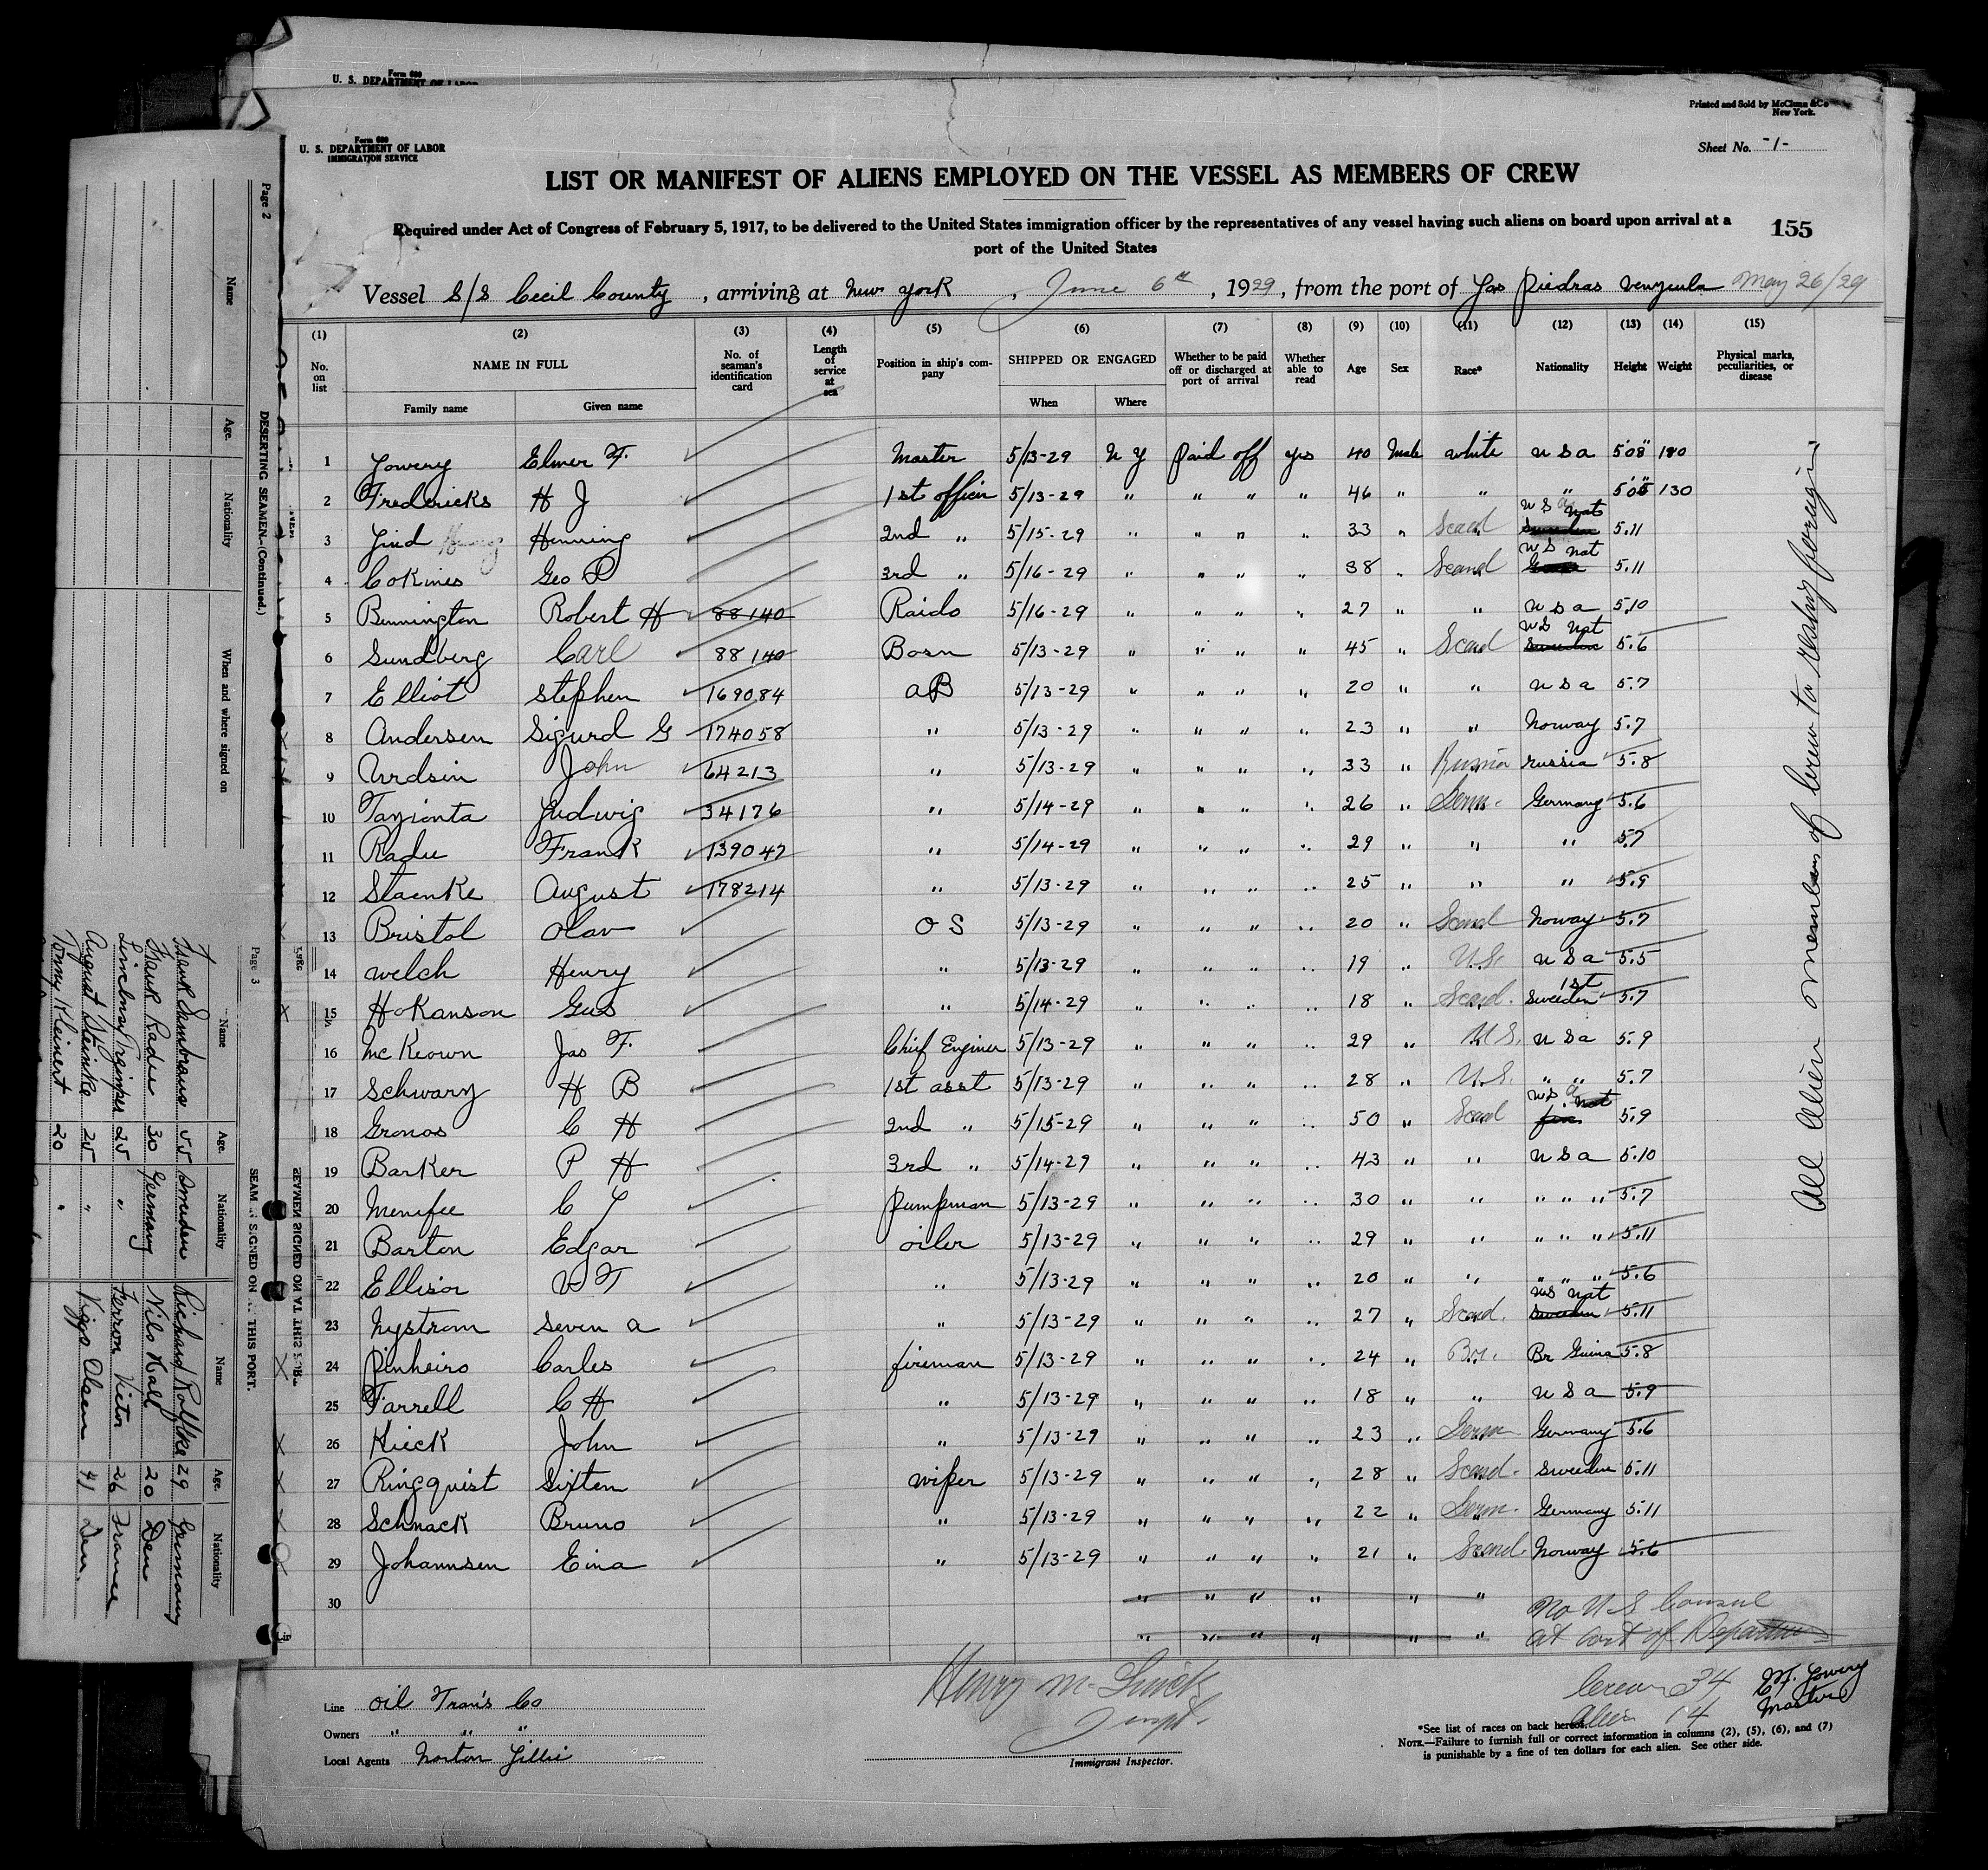 Form 689
U. S. DEPARTMENT OF LABOR
Printed and Sold by McClunn & Co
New York.
Form 689
U. S. DEPARTMENT OF LABOR
IMMIGRATION SERVICE
Sheet No. -1-
LIST OR MANIFEST OF ALIENS EMPLOYED ON THE VESSEL AS MEMBERS OF CREW
Required under Act of Congress of February 5, 1917, to be delivered to the United States immigration officer by the representatives of any vessel having such aliens on board upon arrival at a
port of the United States
155
Vessel S/S Cecil County, arriving at New York, June 6th, 1929, from the port of Las Piedras Venzuela May 26/29
(1) (2) (3) (4) (5) (6) (7) (8) (9) (10) (11) (12) (13) (14) (15)
No. on list NAME IN FULL No. of seaman's identification card Length of service at sea Position in ship's company SHIPPED OR ENGAGED Whether to be paid off or discharged at port of arrival Whether able to read Age Sex Race* Nationality Height Weight Physical marks, peculiarities, or disease
Family name Given name When Where
1 Lowery Elmer F. Master 5/13-29 N Y Paid off yes 40 Male white U S A 5'08" 180
2 Fredericks H J 1st officer 5/13-29 " " " " 46 " " " 5'05 130
3 Lind Henning 2nd " 5/15-29 " " " " 33 " Scand U S A Nat Sweeden 5.11
4 Cokines Geo P 3rd " 5/16-29 " " " " 38 " Scand U S nat 5.11
5 Bennington Robert H 88140 Raido 5/16-29 " " " " 27 " " U S A 5.10
6 Sundberg Carl 88140 Bosn 5/13-29 " " " " 45 " Scand U S nat Sweeden 5.6
7 Elliot Stephen 169084 AB 5/13-29 " " " " 20 " " U S A 5.7
8 Andersen Sigurd G 174058 " 5/13-29 " " " " 23 " " Norway 5.7
9 Urdsin John 64213 " 5/13-29 " " " " 33 " Russia russia 5.8
10 Ludwig 34176 " 5/14-29 " " " " 26 " Germ. Germany 5.6
11 Radue Frank 139047 " 5/14-29 " " " " 29 " " " 5.7
12 Staenke August 178214 " 5/13-29 " " " " 25 " " " 5.9
13 Bristol Olav O S 5/13-29 " " " " 20 " Scand Norway 5.7
14 Welch Henry " 5/13-29 " " " " 19 " U.S. U S A 5.5
15 Hokanson Gus " 5/14-29 " " " " 18 " Scand. 1st Sweeden 5.7
16 McKeown Jas F. Chief Enginer 5/13-29 " " " " 29 " U.S. U S A 5.9
17 Schwarz H B 1st asst 5/13-29 " " " " 28 " U.S. " " 5.7
18 Gronos C H 2nd " 5/15-29 " " " " 50 " Scand U S A nat fin 5.9
19 Barker P H 3rd " 5/14-29 " " " " 43 " " U S A 5.10
20 Menefee C L Pumpman 5/13-29 " " " " 30 " " " " " 5.7
21 Barton Edgar oiler 5/13-29 " " " " 29 " " " " " 5.11
22 Ellison W T " 5/13-29 " " " " 20 " " " " " 5.6
23 Nystrom Seven A " 5/13-29 " " " " 27 " Scand. U S nat Sweeden 5.11
24 Pinheiro Carles fireman 5/13-29 " " " " 24 " Br. Br Guina 5.8
25 Farrell C H " 5/13-29 " " " " 18 " " U S A 5.9
26 Kieck John " 5/13-29 " " " " 23 " Germ Germany 5.6
27 Ringquist Sixten wiper 5/13-29 " " " " 28 " Scand. Sweeden 5.11
28 Schnack Bruno " 5/13-29 " " " " 22 " Germ. Germany 5.11
29 Johannsen Eina " 5/13-29 " " " " 21 " Scand. Norway 5.6
30 " " " " " "
" " " " " "
No U S Consul
at Port of Departure
All Alien members of Crew to reship foreign
Line Oil Tran's Co
Owners " " "
Local Agents Norton Lillie
Immigrant Inspector.
Crew 34
Alien 14
E F. Lowery
Master
*See list of races on back hereof.
NOTE.—Failure to furnish full or correct information in columns (2), (5), (6), and (7)
is punishable by a fine of ten dollars for each alien. See other side.
Page 2
DESERTING SEAMEN.—(Continued.)
Name Age. Nationality When and where signed on
Page 3
SEAMEN SIGNED ON AT THIS PORT.
Name Age. Nationality Name Age. Nationality
Frank 55 Sweden Richard 29 Germany
Frank Radue 30 Germany Nils Hall 20 Den
25 " Ferron Victor 26 France
August Steinke 25 " Viggo Olsen 41 Den.
Tonny Kleinert 20 "